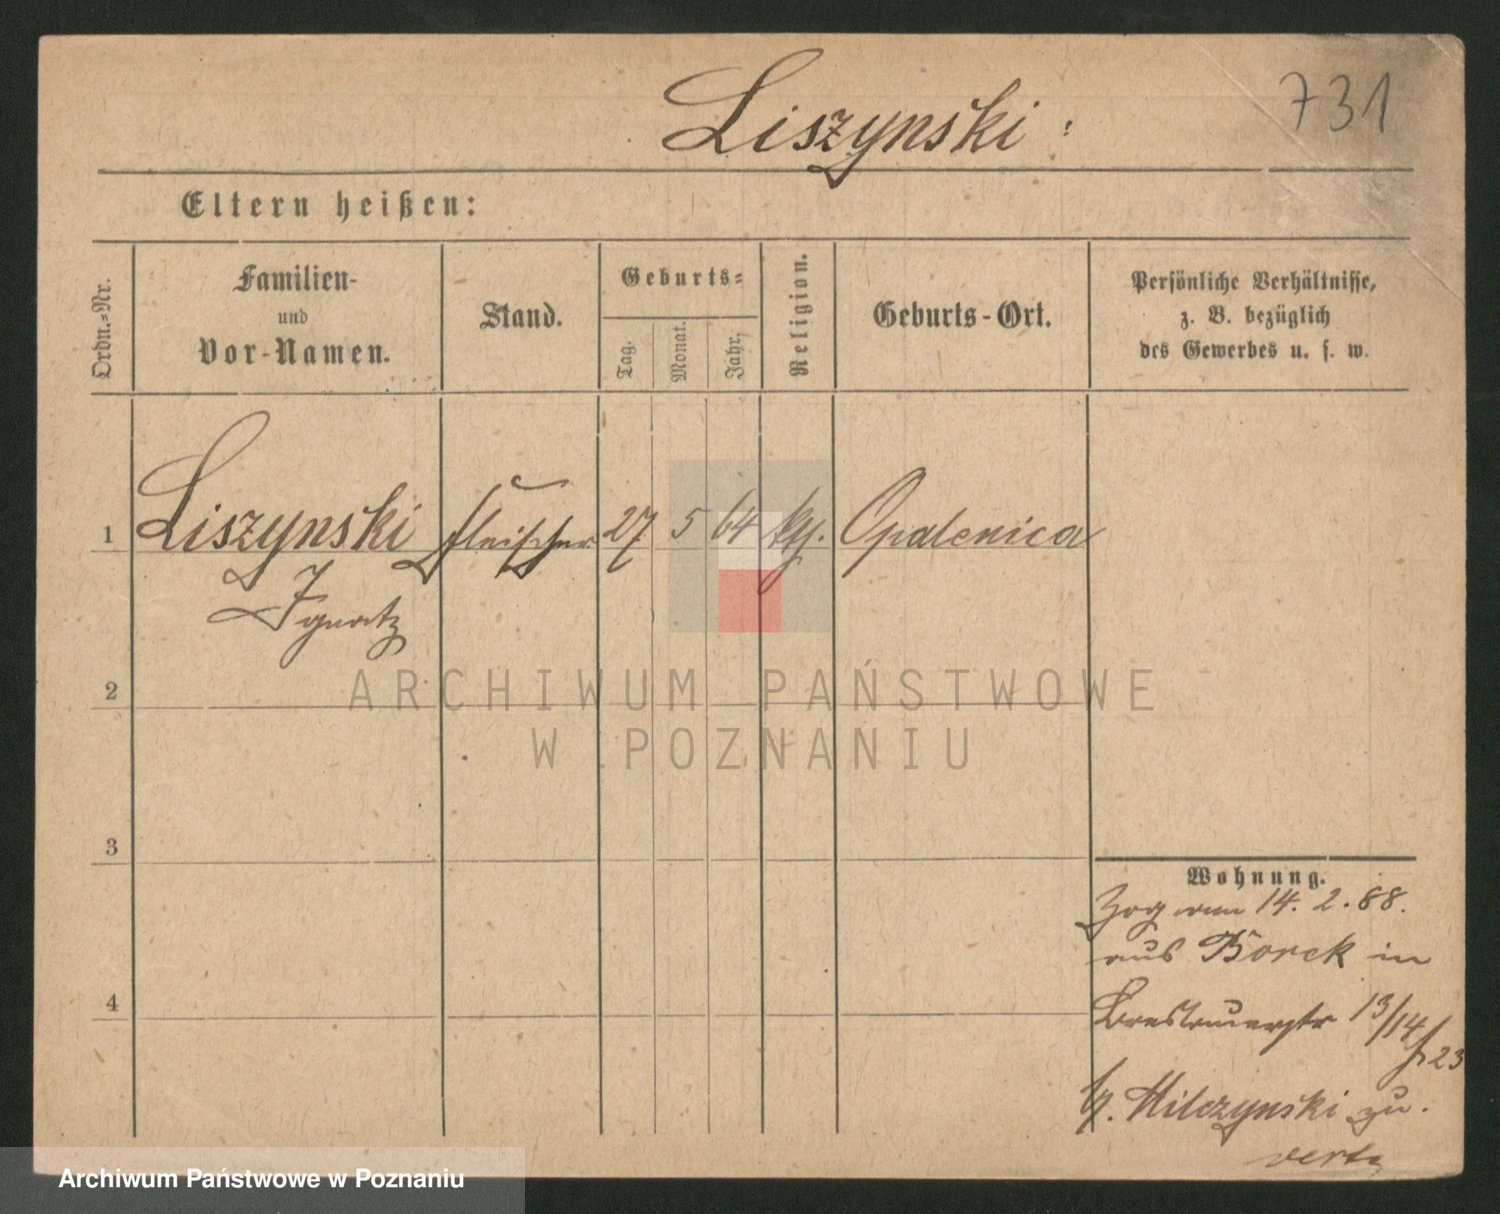 731
Liszynski
Eltern heißen:
Ordn.-Nr.
Familien-
und
Vor-Namen.
Stand.
Geburts-
Tag.
Monat.
Jahr.
Religion.
Geburts-Ort.
Persönliche Verhältnisse,
z. B. bezüglich
des Gewerbes u. s. w.
1 Liszynski Fleischer 27 5 64 kth. Opalenica
Ignatz
2
ARCHIWUM PAŃSTWOWE
W POZNANIU
3
Wohnung.
Zog am 14. 2. 88.
aus Borek in
4
13/14
23
b. Milczynski zu.
verte
Archiwum Państwowe w Poznaniu